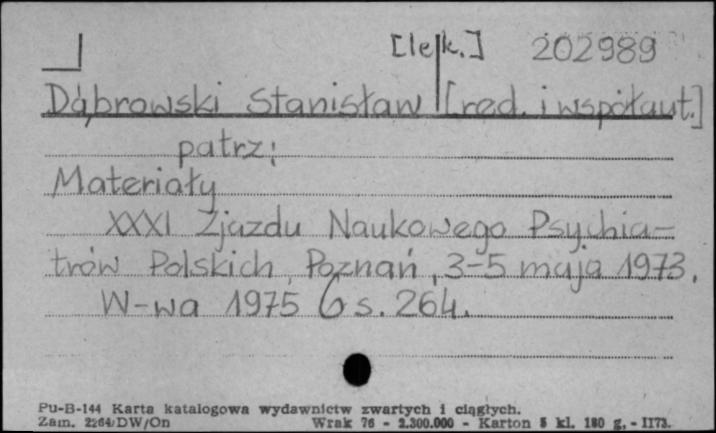 [lek.] 202989
Dąbrowski Stanisław [red. i współaut.]
patrz:
Materiały
XXXI Zjazdu Naukowego Psychia-
trów Polskich, Poznań, 3-5 maja 1973.
W-wa 1975 s. 264.
Pu-B-144 Karta katalogowa wydawnictw zwartych i ciągłych.
Zam. 2264/DW/On Wrak 76 - 2.300.000 - Karton 5 kl. 180 g. - II73.